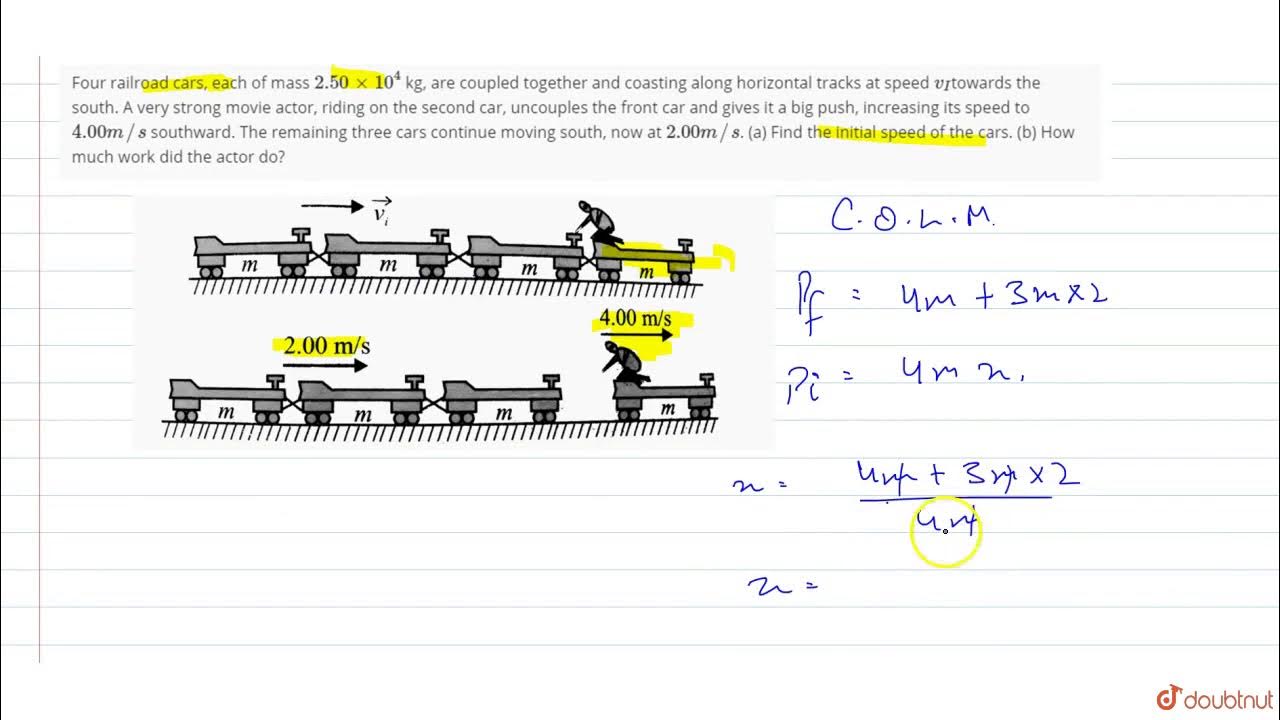 Four railroad cars, each of mass 2.50 × 10⁴ kg, are coupled together and coasting along horizontal tracks at speed v_I towards the
south. A very strong movie actor, riding on the second car, uncouples the front car and gives it a big push, increasing its speed to
4.00m/s southward. The remaining three cars continue moving south, now at 2.00m/s. (a) Find the initial speed of the cars. (b) How
much work did the actor do?
v_i
m m m m
4.00 m/s
2.00 m/s
m m m m
C.O.L.M.
Pf = 4m + 3m×2
Pi = 4m x,
x = 4m + 3m × 2
4m
x =
doubtnut